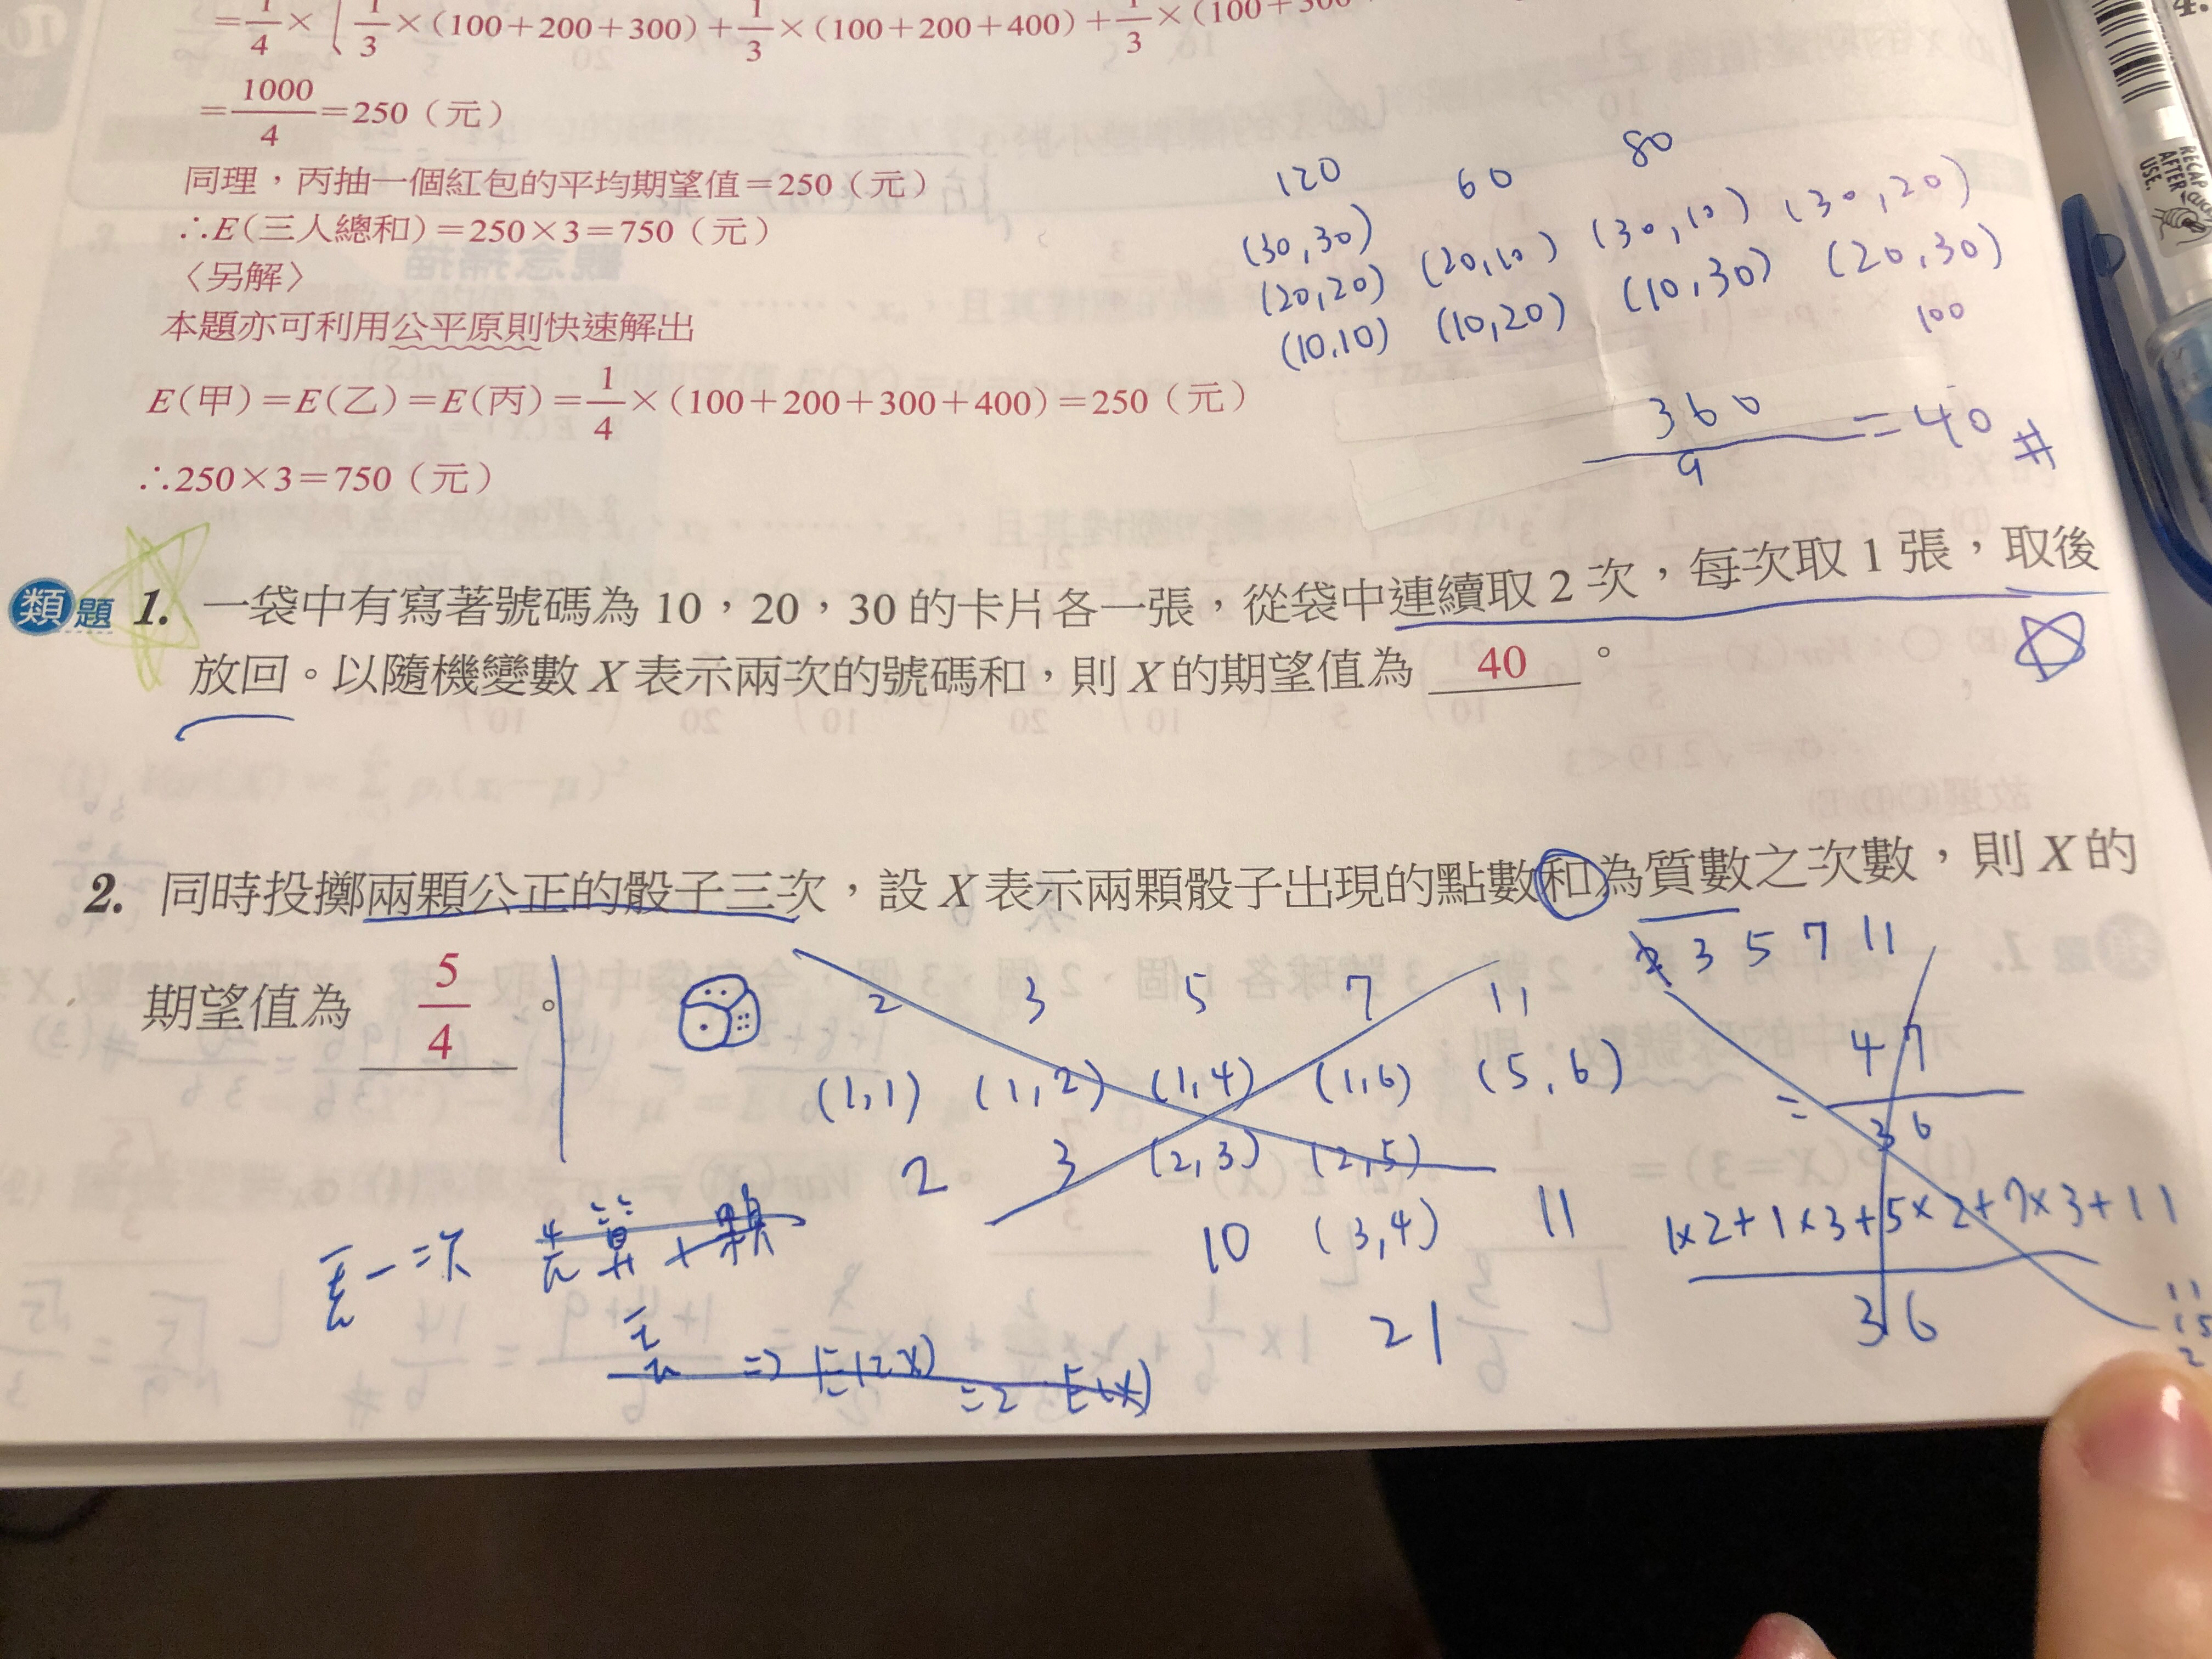 =1/4×[1/3×(100+200+300)+1/3×(100+200+400)+1/3×(100+300
=1000/4=250（元）
同理，丙抽一個紅包的平均期望值=250（元）
∴E(三人總和)=250×3=750（元）
〈另解〉
本題亦可利用公平原則快速解出
E(甲)=E(乙)=E(丙)=1/4×(100+200+300+400)=250（元）
∴250×3=750（元）
120 60 80
(30,30) (20,10) (30,10) (30,20)
(20,20) (10,20) (10,30) (20,30)
(10,10) 100
360/9=40 #
類題 1. 一袋中有寫著號碼為 10，20，30 的卡片各一張，從袋中連續取 2 次，每次取 1 張，取後
放回。以隨機變數 X 表示兩次的號碼和，則 X 的期望值為 40 。
2. 同時投擲兩顆公正的骰子三次，設 X 表示兩顆骰子出現的點數和為質數之次數，則 X 的
期望值為 5/4 。
2 3 5 7 11
2 3 5 7 11
(1,1) (1,2) (1,4) (1,6) (5,6)
2 3 (2,3) (2,5) 11
10 (3,4)
21
=47/36
1×2+1×3+5×2+7×3+11
36
=> E(2X) =2·E(X)
RECAP
AFTER
USE.
4.